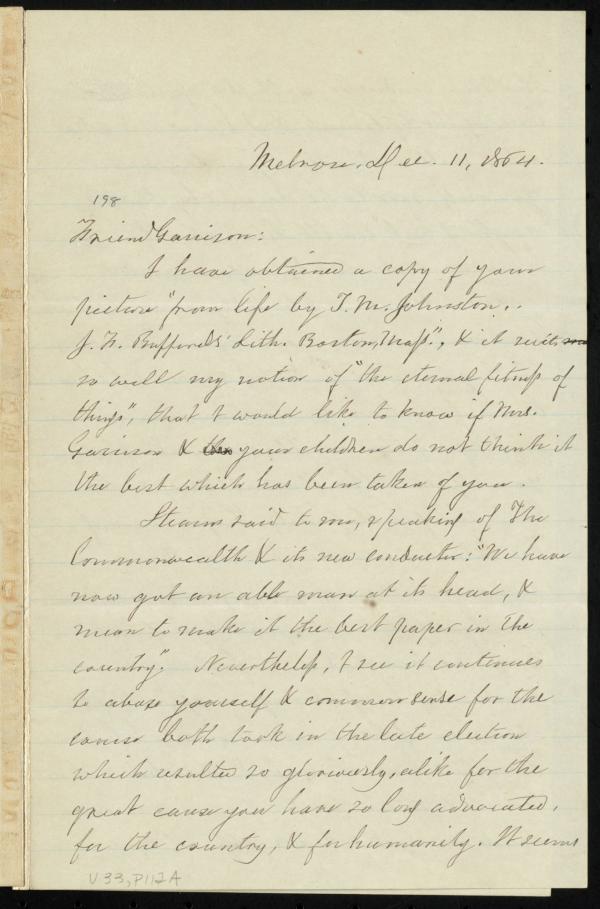 Melrose, Dec. 11, 1864.
198
Friend Garrison:
I have obtained a copy of your
picture "from life by T. M. Johnston.,
J. H. Bufford's Lith. Boston, Mass.", & it suits
so well my notion of "the eternal fitness of
things", that I would like to know if Mrs.
Garrison & your children do not think it
the best which has been taken of you.
Stearns said to me, speaking of The
Commonwealth & its new conductor: "We have
now got an able man at its head, &
mean to make it the best paper in the
country." Nevertheless, I see it continues
to abuse yourself & common sense for the
course both took in the late election
which resulted so gloriously, alike for the
great cause you have so long advocated,
for the country, & for humanity. It seems
V.33, P112A